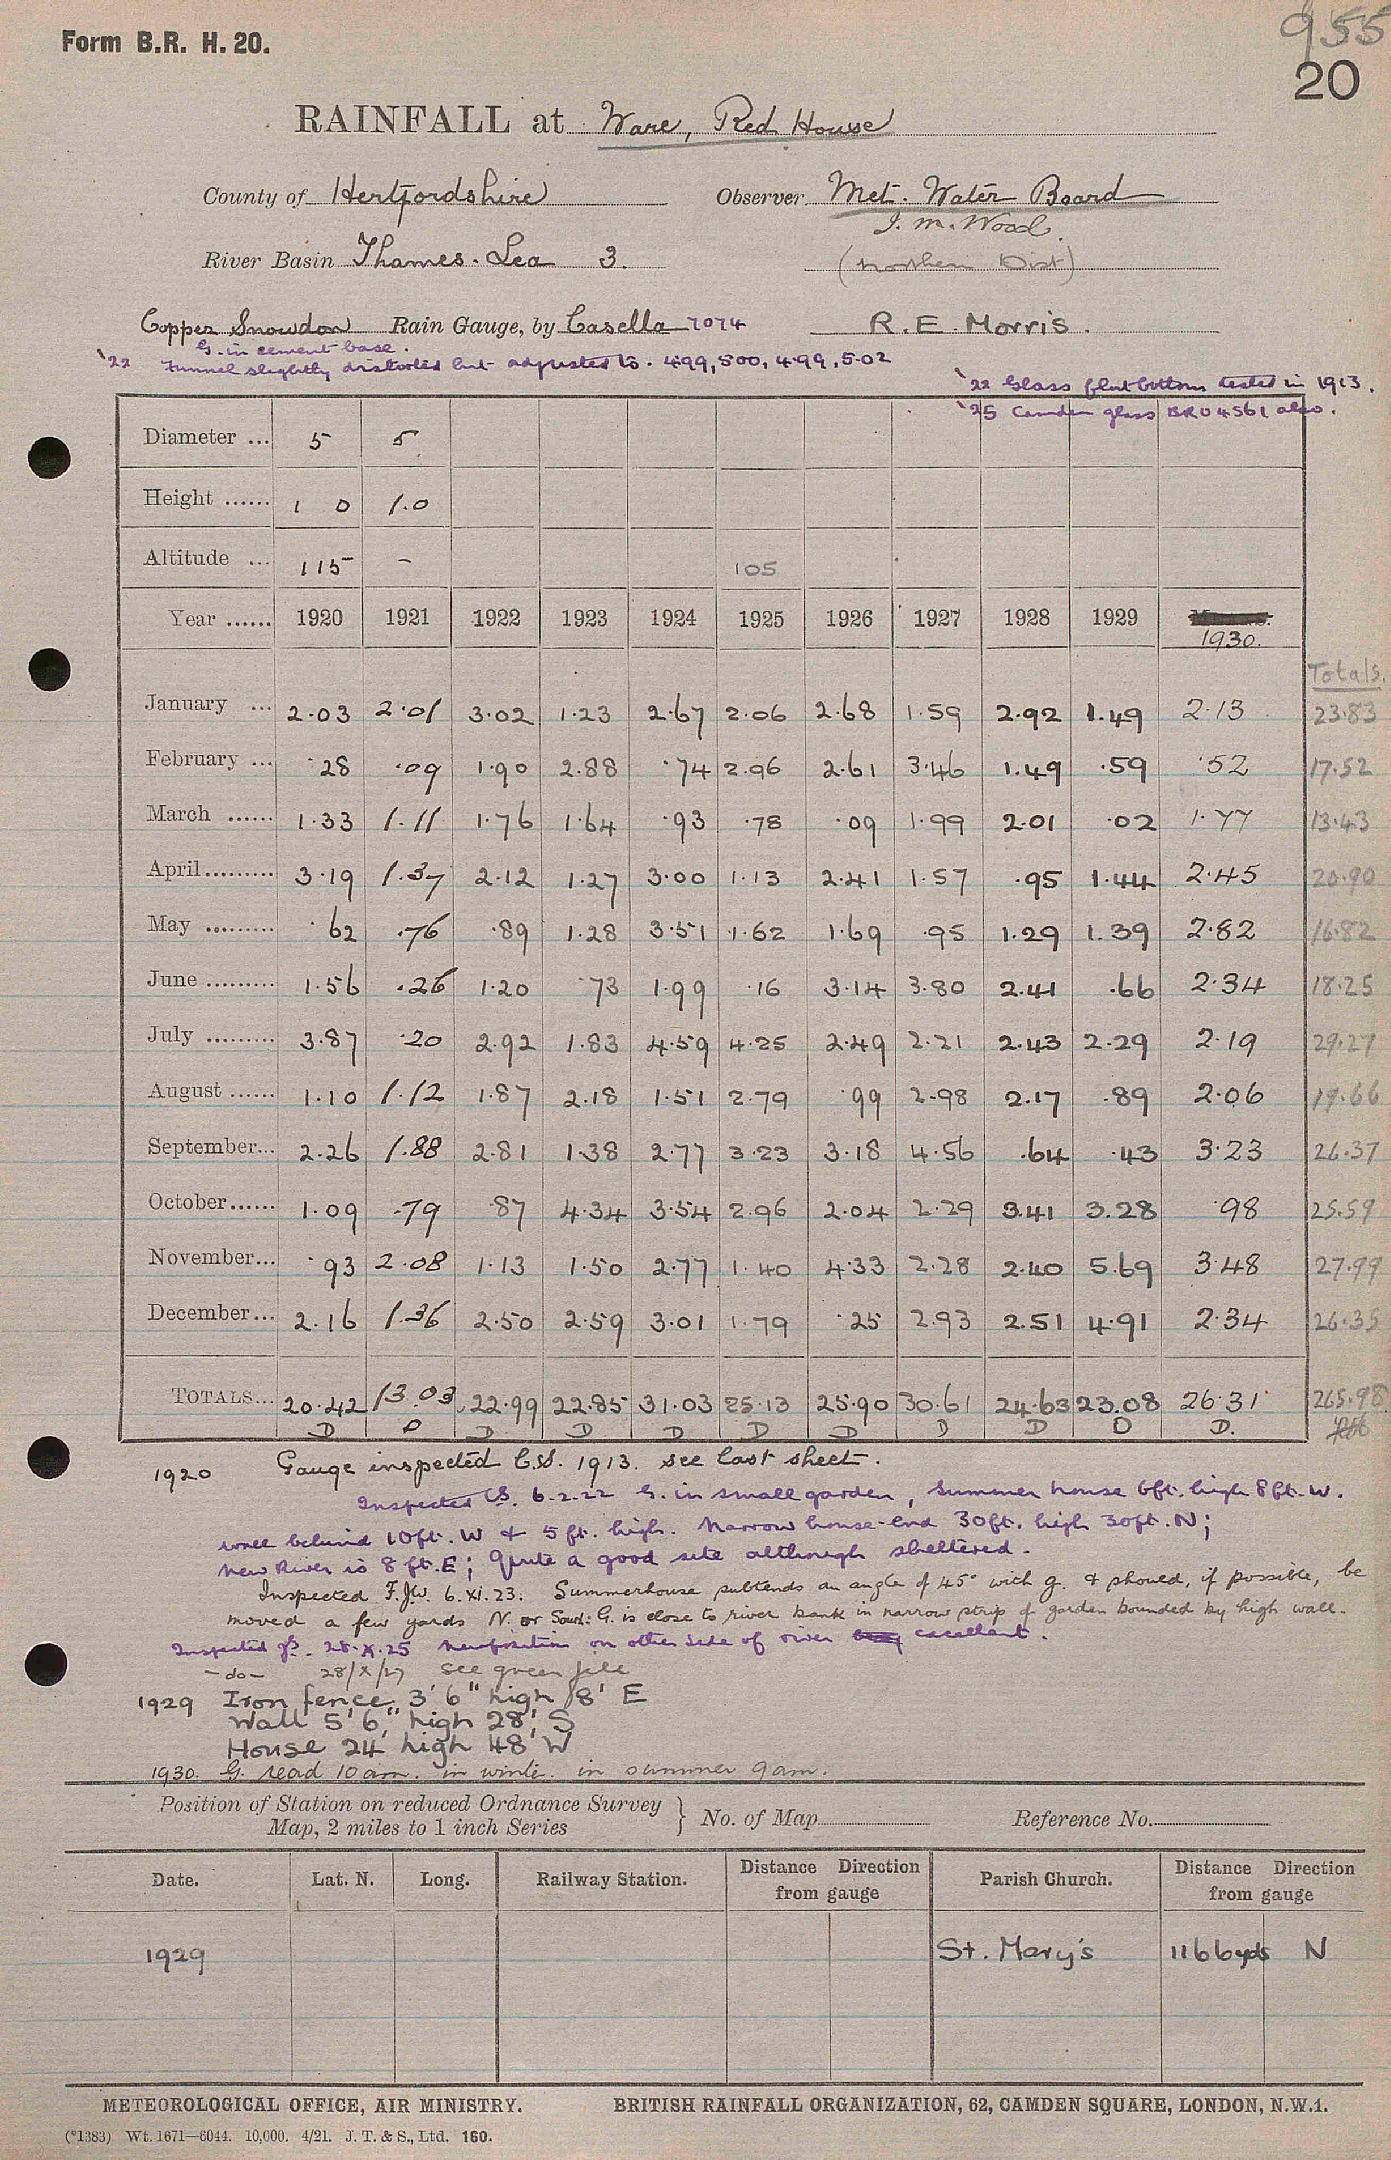 955
Form B.R. H. 20.
20
RAINFALL at Ware, Red House
County of Hertfordshire Observer Met. Water Board
J. M. Wood.
River Basin Thames. Lea 3. (Northern Dist)
Copper Snowdon Rain Gauge, by Casella 7074 R. E. Morris.
G. in cement base.
'22 Funnel slightly distorted but adjusted to. 4.99, 5.00, 4.99, 5.02
'22 Glass flat bottom tested in 1913.
'25 Camden glass BR04561 also.
Diameter ... 5 5
Height ...... 1 0 1.0
Altitude ... 115 - 105
Year ...... 1920 1921 1922 1923 1924 1925 1926 1927 1928 1929 1930.
Totals.
January ... 2.03 2.01 3.02 1.23 2.67 2.06 2.68 1.59 2.92 1.49 2.13 23.83
February ... .28 .09 1.90 2.88 .74 2.96 2.61 3.46 1.49 .59 .52 17.52
March ...... 1.33 1.11 1.76 1.64 .93 .78 .09 1.99 2.01 .02 1.77 13.43
April ......... 3.19 1.37 2.12 1.27 3.00 1.13 2.41 1.57 .95 1.44 2.45 20.90
May ......... .62 .76 .89 1.28 3.51 1.62 1.69 .95 1.29 1.39 2.82 16.82
June ......... 1.56 .26 1.20 .73 1.99 .16 3.14 3.80 2.41 .66 2.34 18.25
July ......... 3.87 .20 2.92 1.83 4.59 4.25 2.49 2.21 2.43 2.29 2.19 29.27
August ...... 1.10 1.12 1.87 2.18 1.51 2.79 .99 2.98 2.17 .89 2.06 19.66
September... 2.26 1.88 2.81 1.38 2.77 3.23 3.18 4.56 .64 .43 3.23 26.37
October...... 1.09 .79 .87 4.34 3.54 2.96 2.04 2.29 3.41 3.28 .98 25.59
November... .93 2.08 1.13 1.50 2.77 1.40 4.33 2.28 2.40 5.69 3.48 27.99
December... 2.16 1.36 2.50 2.59 3.01 1.79 .25 2.93 2.51 4.91 2.34 26.35
TOTALS... 20.42 13.03 22.99 22.85 31.03 25.13 25.90 30.61 24.63 23.08 26.31 265.98
D D D D D D D D D D D.
1920 Gauge inspected C.S. 1913. see last sheet.
Inspected CS. 6.2.22 G. in small garden, Summer house 6ft. high 8ft. W.
wall behind 10ft. W & 5 ft. high. Narrow house-end 30ft. high 30ft. N;
New River is 8 ft. E; Quite a good site although sheltered.
Inspected F.J.W. 6.XI.23. Summerhouse subtends an angle of 45° with g. & should, if possible, be
moved a few yards N. or South: G. is close to river bank in narrow strip of garden bounded by high wall.
Inspected 28.X.25 New position on other side of river excellent.
-do- 28/X/27 see green file
1929 Iron fence 3' 6" high 8' E
Wall 5' 6" high 28' S
House 24' high 48' W
1930. G. read 10am. in winter. in summer 9am.
Position of Station on reduced Ordnance Survey
Map, 2 miles to 1 inch Series } No. of Map Reference No.
Date. Lat. N. Long. Railway Station. Distance Direction from gauge Parish Church. Distance Direction from gauge
1929 St. Mary's 1166yds N
METEOROLOGICAL OFFICE, AIR MINISTRY. BRITISH RAINFALL ORGANIZATION, 62, CAMDEN SQUARE, LONDON, N.W.1.
(*1383) Wt. 1671—6044. 10,000. 4/21. J. T. & S., Ltd. 160.